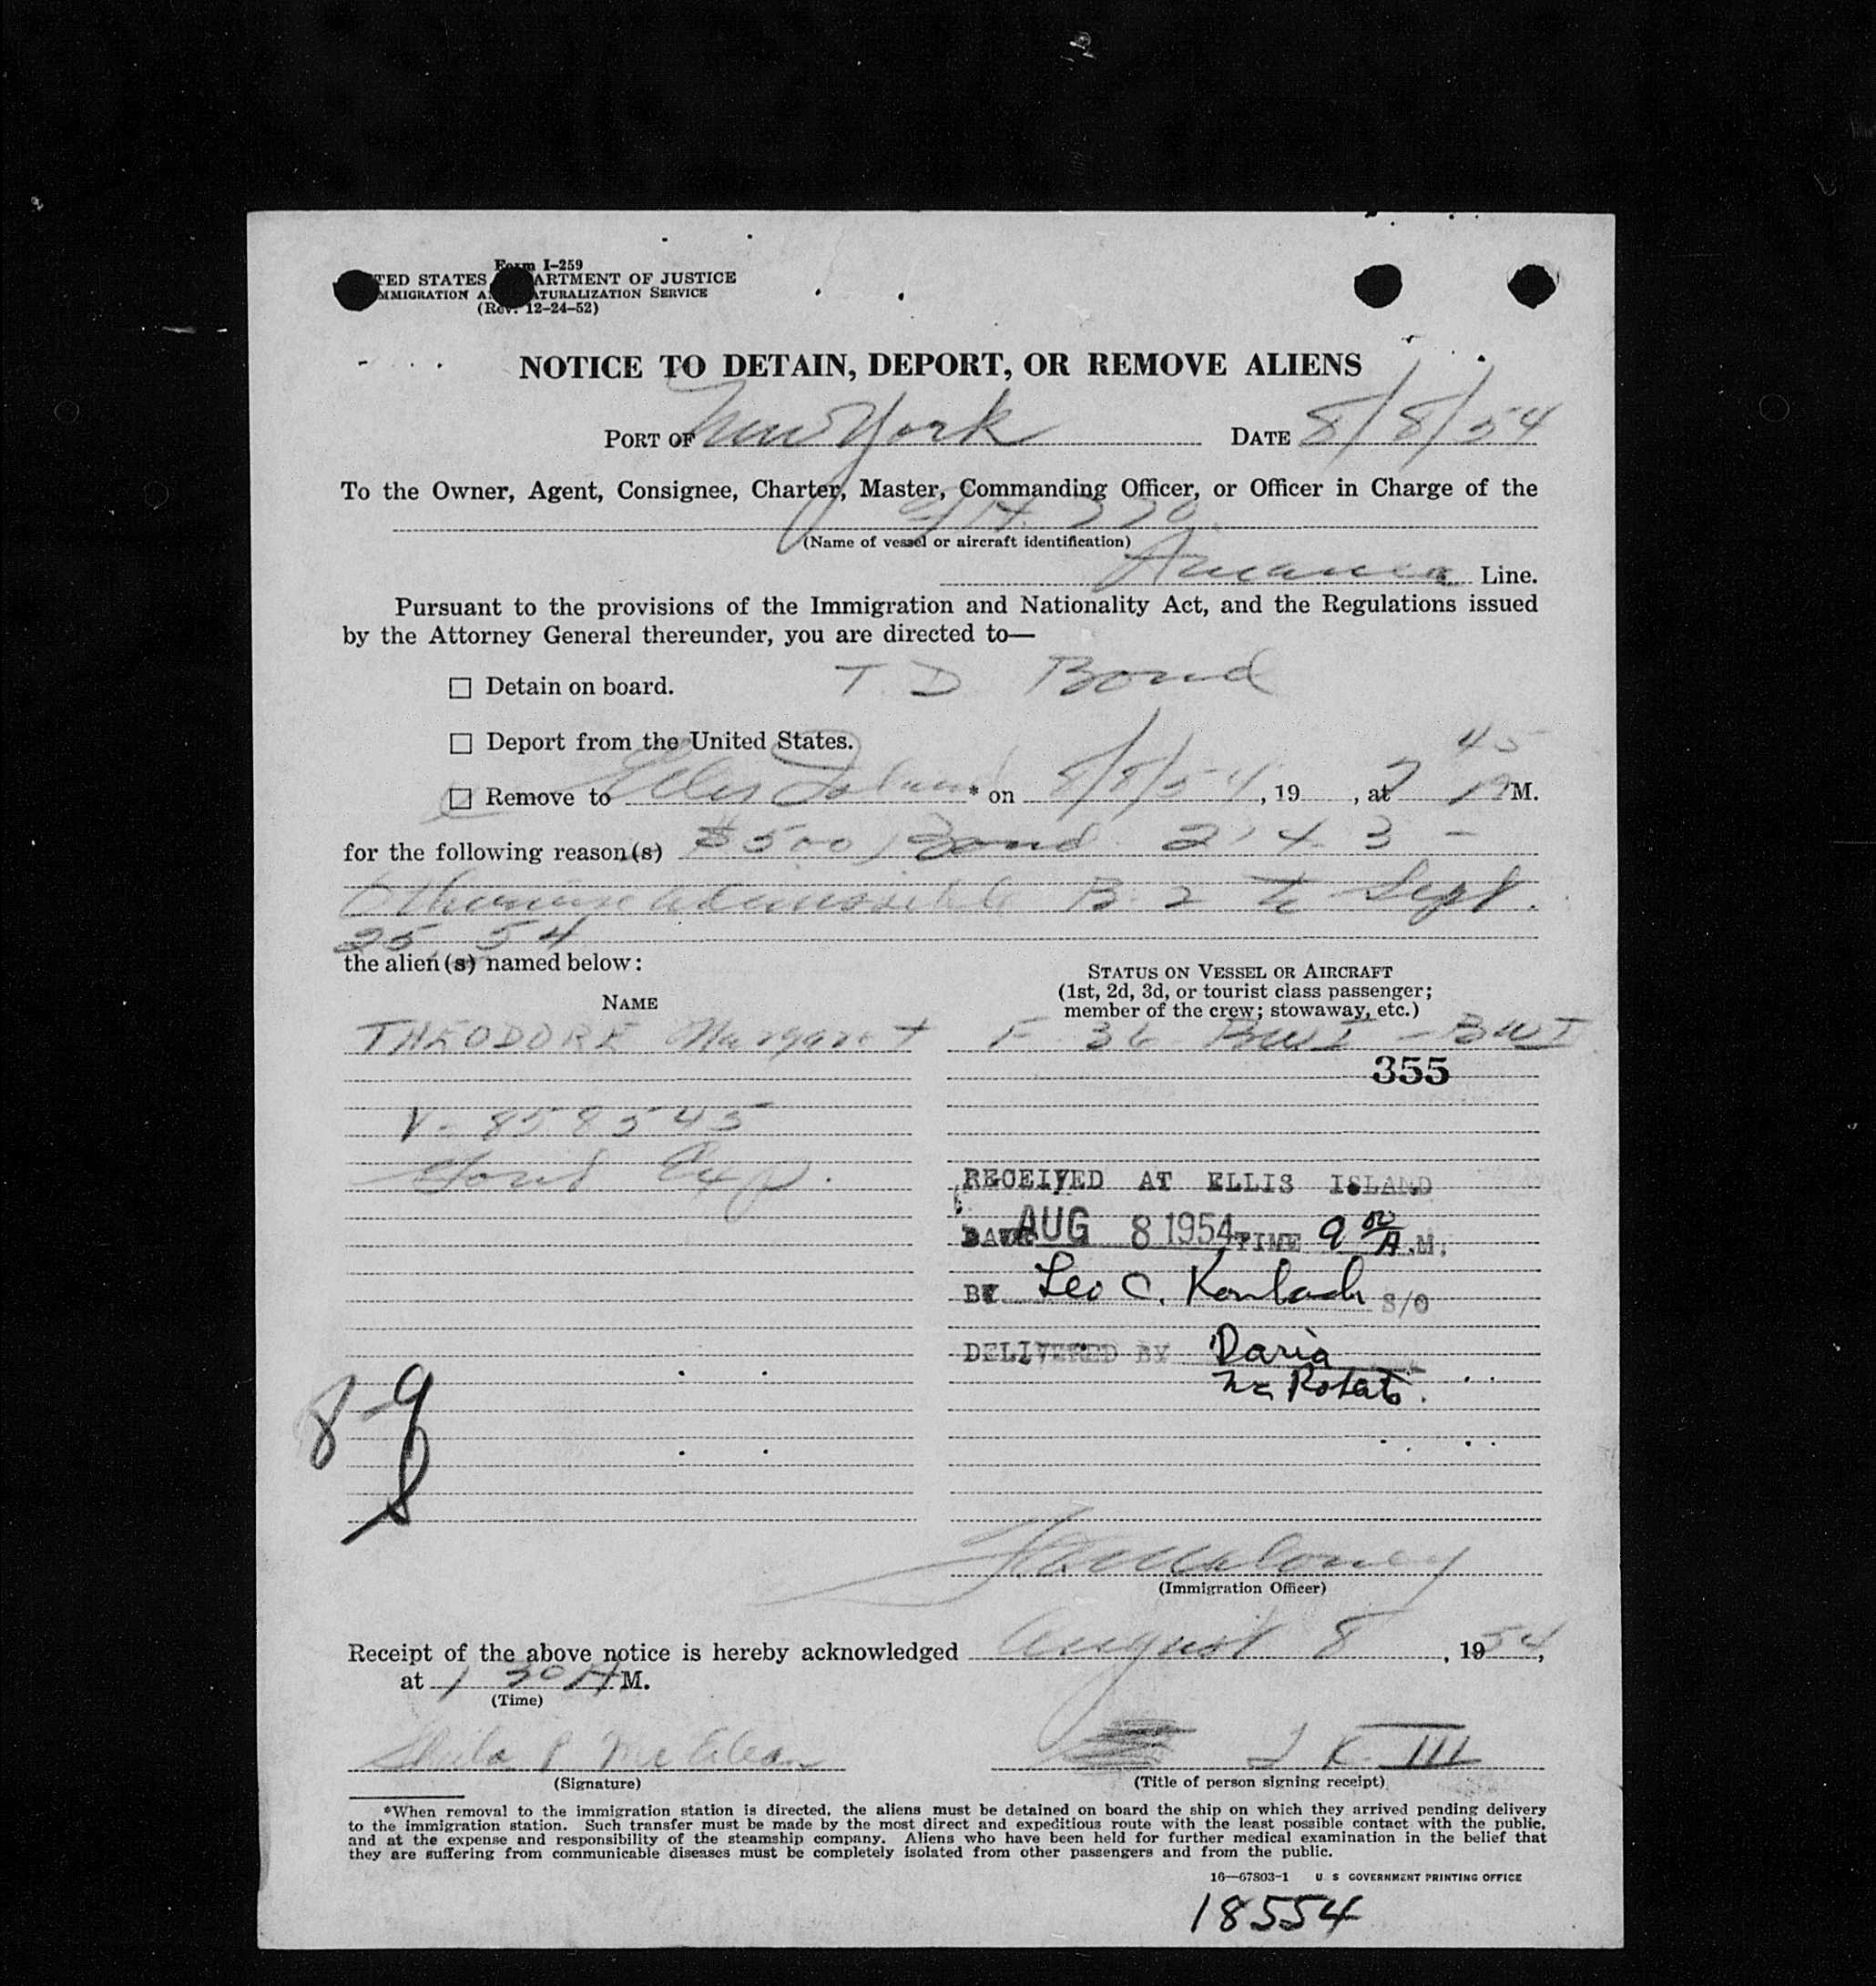 Form I-259
TED STATES ARTMENT OF JUSTICE
MMIGRATION A ATURALIZATION SERVICE
(Rev. 12-24-52)
NOTICE TO DETAIN, DEPORT, OR REMOVE ALIENS
PORT OF New York DATE 8/8/54
To the Owner, Agent, Consignee, Charter, Master, Commanding Officer, or Officer in Charge of the
770
(Name of vessel or aircraft identification)
Line.
Pursuant to the provisions of the Immigration and Nationality Act, and the Regulations issued
by the Attorney General thereunder, you are directed to—
☐ Detain on board. T. D Bond
☐ Deport from the United States.
☐ Remove to Ellis Island * on 8/8/54, 19 , at 7 45 M.
for the following reason(s) $500 Bond 243 -
Otherwise admissible B. 2 to Sept.
25, 54
the alien(s) named below:
STATUS ON VESSEL OR AIRCRAFT
(1st, 2d, 3d, or tourist class passenger;
member of the crew; stowaway, etc.)
NAME
THEODORE Margaret F 36 BWI - BWI
355
V- 858545
RECEIVED AT ELLIS ISLAND
DATE AUG 8 1954 TIME 9 00 A.M.
BY Leo C. S/O
DELIVERED BY Daria
8-9
(Immigration Officer)
Receipt of the above notice is hereby acknowledged August 8, 1954,
at 1 30 A M.
(Time)
(Signature)
(Title of person signing receipt)
*When removal to the immigration station is directed, the aliens must be detained on board the ship on which they arrived pending delivery
to the immigration station. Such transfer must be made by the most direct and expeditious route with the least possible contact with the public,
and at the expense and responsibility of the steamship company. Aliens who have been held for further medical examination in the belief that
they are suffering from communicable diseases must be completely isolated from other passengers and from the public.
16—67803-1 U S GOVERNMENT PRINTING OFFICE
18554